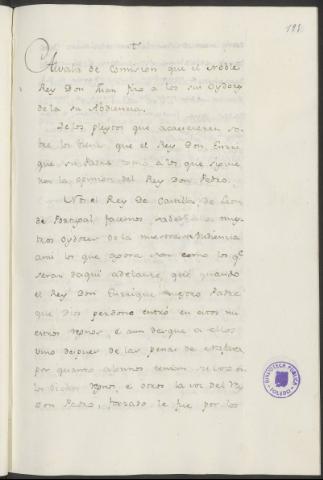 181
Alvala de Comision que el Noble
Rey Don Juan fizo a los sus Oydores
de la su Abdiencia.
De los pleytos que acaecieren so-
bre los bienes que el Rey Don Enrri-
que su Padre tomó a los que siguie-
ron la opinion del Rey Don Pedro.
Nos el Rey De Castilla, de Leon
de Portogal facemos saber a los nues-
tros Oydores de la nuestra Abdiencia
ansi los que agora son como los qe
seran daqui adelante, que quando
el Rey Don Enrrique nuestro Padre
que Dios perdone entró en estos nu-
estros Regnos, e aun desque a ellos
vino despues de las penas de
por quanto algunos tenian
los dichos Regnos, e
Don Pedro, forzado le fue por los
BIBLIOTECA PUBLICA
TOLEDO